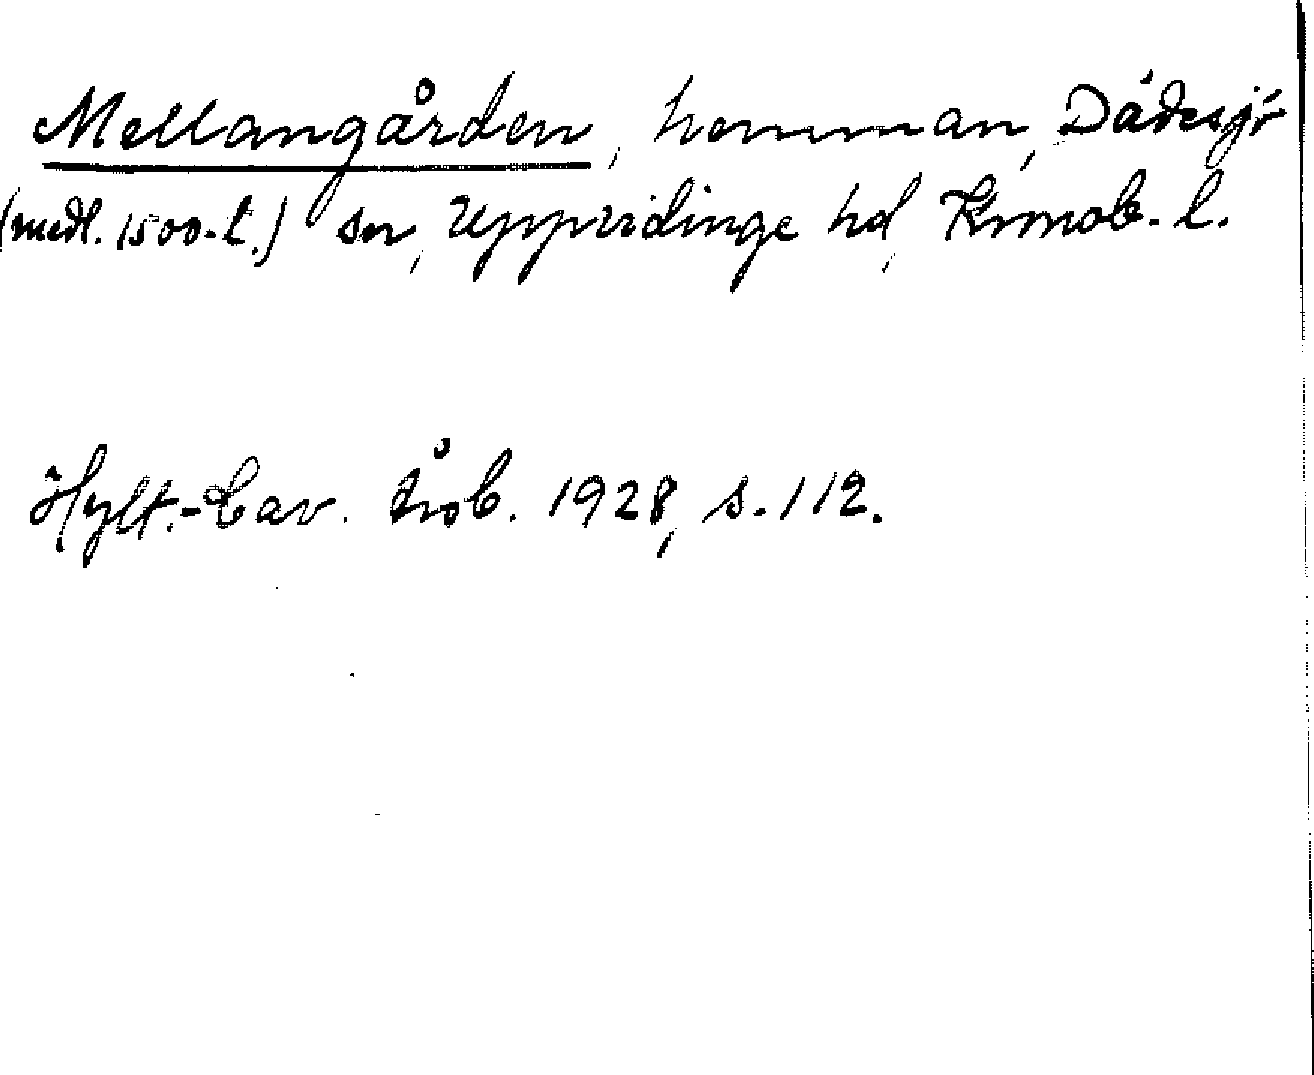 Mellangården, hemman, Dädesjö
(medl. 1500-t.) sn, Uppvidinge hd, Kronob. l.
Hylt.-Cav. årsb. 1928, s. 112.